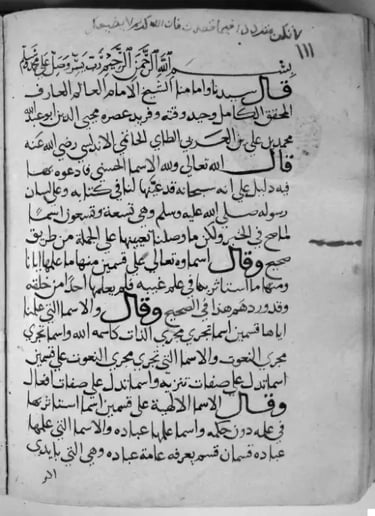 ١١١
بسم الله الرحمن الرحيم رب يسر وصل على محمد
قال سيدنا وامامنا الشيخ الامام العالم العارف
المحقق الكامل وحيد وقته وفريد عصره محيي الدين ابو عبد الله
محمد بن علي بن العربي الطاي الحاتمي الاندلسي رضي الله عنه
قال الله تعالى ولله الاسما الحسنى فادعوه بها
فيه دليل على انه سبحانه قد عينها لنا في كتابه وعلى لسان
رسوله صلى الله عليه وسلم وهي تسعة وتسعون اسما
لما صح في الخبر ولكن ما وصلنا تعيينها على الجملة من طريق
صحيح وقال اسماوه تعالى على قسمين منها ما علمها ايانا
ومنها ما استاثر بها في علم غيبه فلم يعلمها احدا من خلقه
وقد ورد هذا في الصحيح وقال والاسما التي علمنا
اياها قسمين اسما تجري مجرى الذات كاسمه الله واسما تجري
مجرى النعوت والاسما التي تجري مجرى النعوت على قسمين
اسما تدل على صفات تنزيه واسما تدل على صفات افعال
وقال الاسما الالهية على قسمين اسما استاثر بها
في علمه دون خلقه واسما علمها عباده والاسما التي علمها
عباده قسمان قسم يعرفه عامة عباده وهي التي بايدي